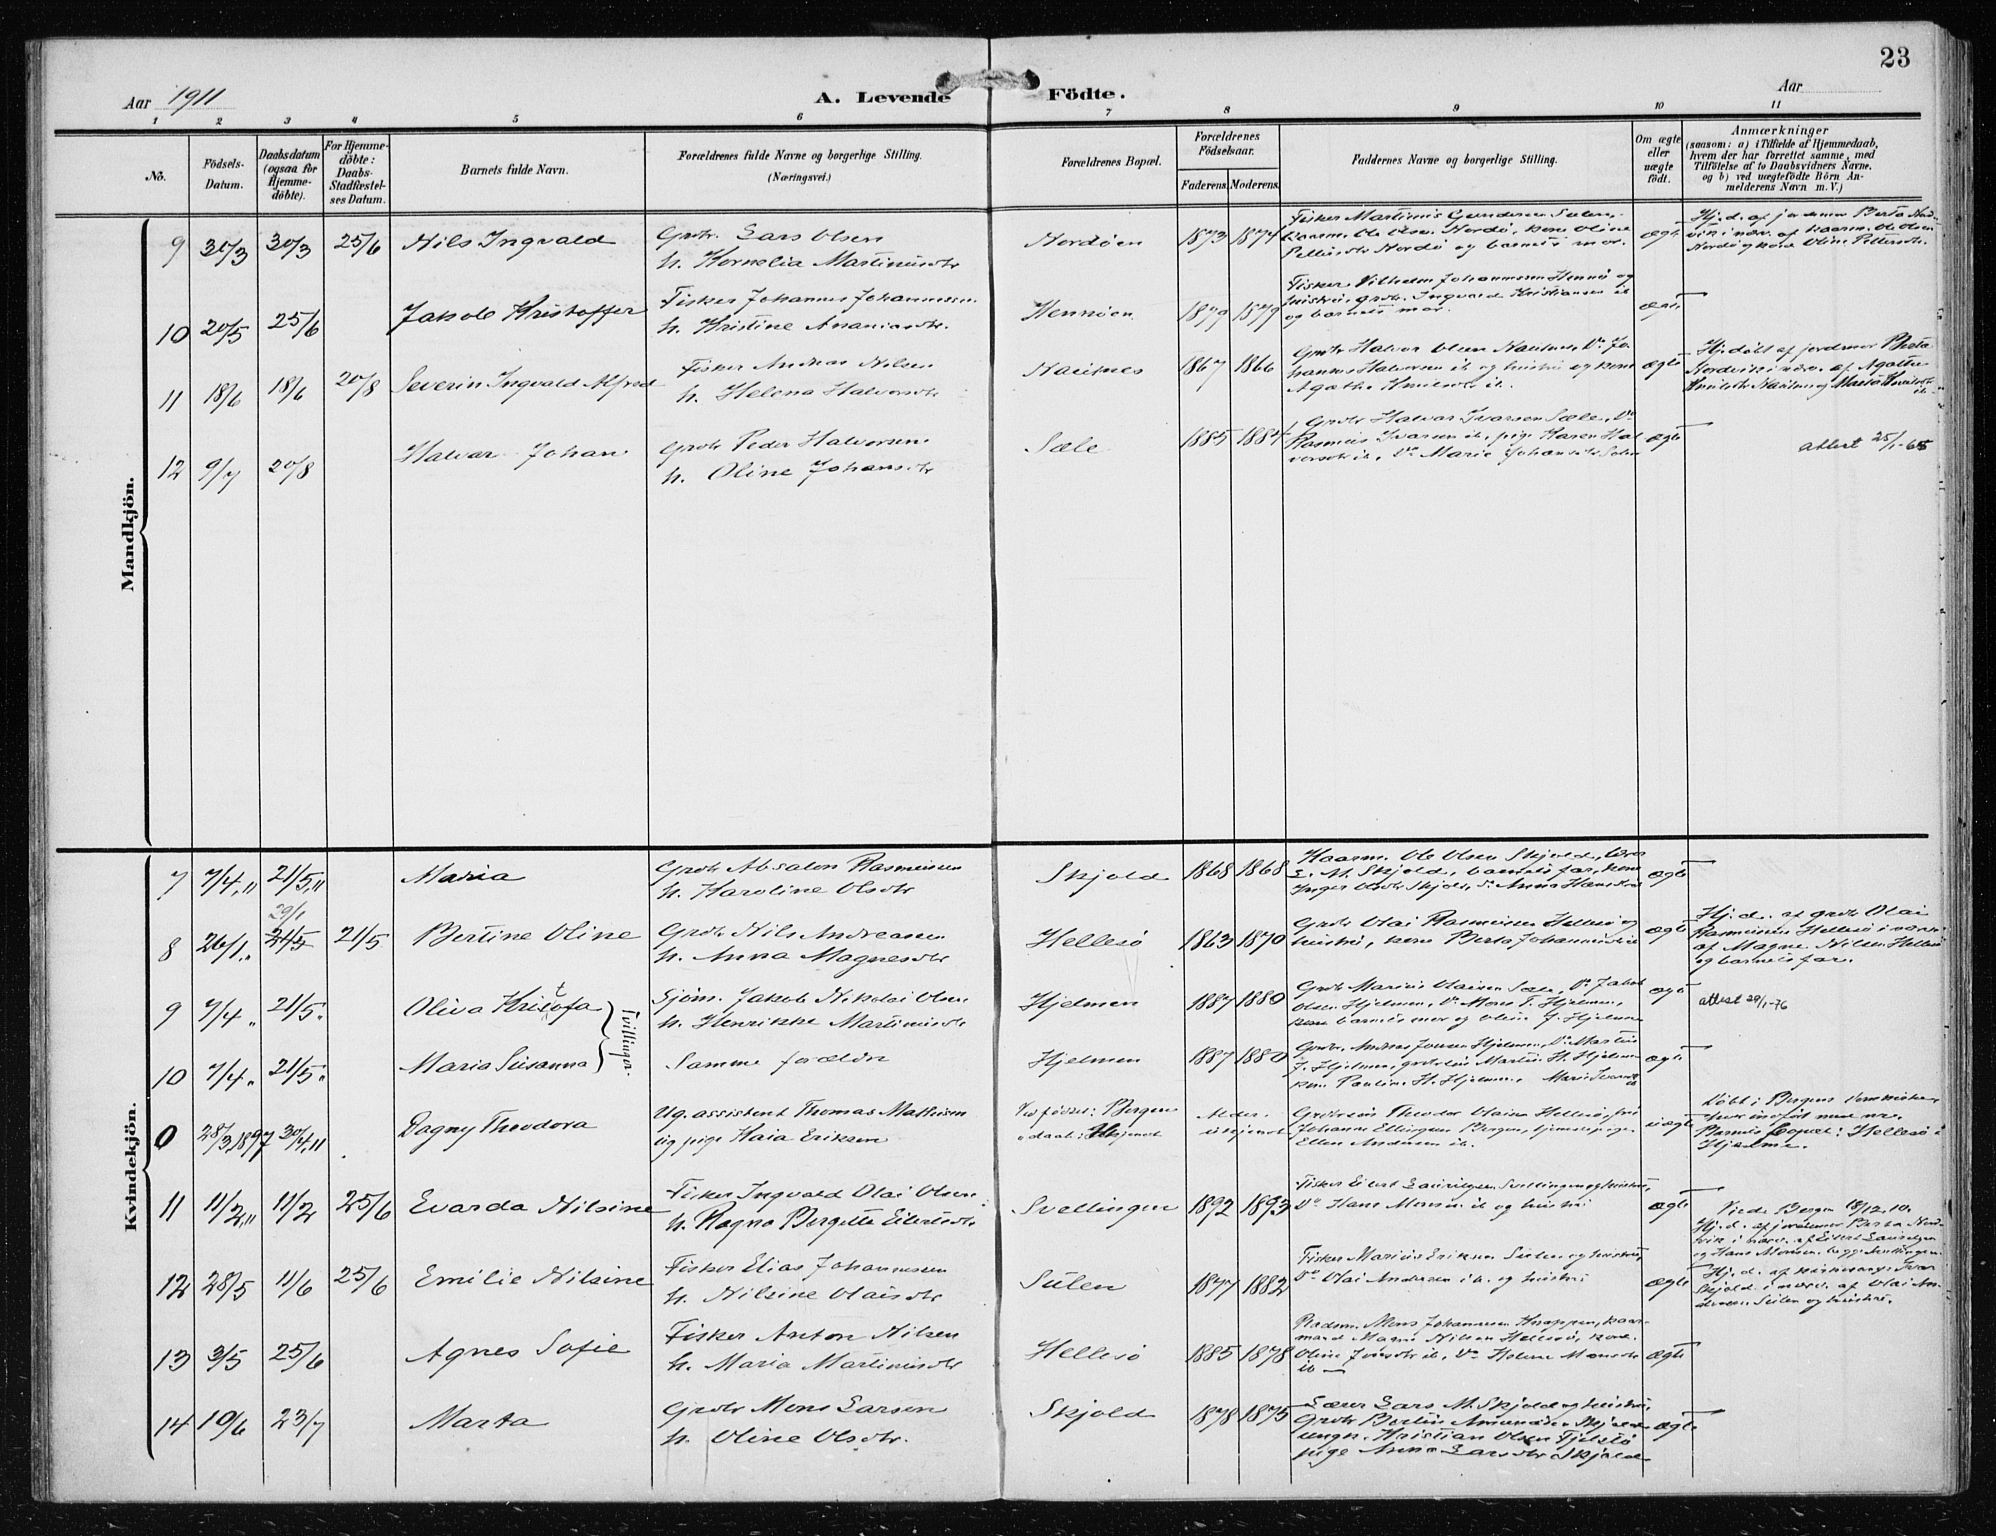 23
Aar 1911
A. Levende Födte.
Aar
1 2 3 4 5 6 7 8 9 10 11
No.
Födsels-Datum.
Daabsdatum (ogsaa for Hjemme-döbte).
For Hjemme-döbte: Daabs-Stadfæstel-ses Datum.
Barnets fulde Navn.
Forældrenes fulde Navne og borgerlige Stilling.
(Næringsvei.)
Forældrenes Bopæl.
Forældrenes Födselsaar.
Faderens. Moderens.
Faddernes Navne og borgerlige Stilling.
Om ægte eller uægte födt.
Anmærkninger
(saasom: a) i Tilfælde af Hjemmedaab, hvem der har forrettet samme, med Tilföielse af to Daabsvidners Navne, og b) ved uægtefödte Börn An-melderens Navn m. V.)
Mandkjön.
9 30/3 30/3 25/6 Nils Ingvald Grbr. Lars Olsen
h. Kornelia Martinusdtr
Nordöen 1873 1874 Fisker Martinus Gundersen Sulen,
Kaarm. Ole Olsen Nordö, kone Oline
Pettersdtr Nordö og barnets mor.
ægte
Hj.d. af jordmor Berta Nord-
vik i nærv. af kaarm. Ole Olsen
Nordö og kone Oline Pettersdtr.
10 20/5 25/6 Jakob Kristoffer Fisker Johannes Johannessen
h. Kristine Ananiasdtr.
Hennöen 1879 1879 Fisker Vilhelm Johannessen Hennö og
hustrü, grbr. Ingvald Kristiansen ib
og barnets mor.
ægte
11 18/6 18/6 20/8 Severin Ingvald Alfred Fisker Andreas Nilsen
h. Helena Halvorsdtr
1867 1866 Grbr Halvor Olsen
hannes Halvorsen ib og hustrü og kone
Agathe ib.
ægte
Hj.døbt af jordmor Berta
Nordvik i nærv. af Agathe
12 9/7 20/8 Halvar Johan Grbr Peder Halvorsen
h. Oline Johansdtr
Sæle 1885 1884 Grbr Halvar Ivarsen Sæle, Do
Rasmus Ivarsen ib, pige Karen Hal
vorsdtr ib, Do Marie Johansdtr
ægte
attest 25/1-65
Kvindekjön.
7 7/4 " 21/5 " Maria Grbr Absalon Rasmussen
h. Karoline Olsdtr
Skjold 1868 1868 Kaarm. Ole Olsen Skjold, lærer
L. M. Skjold, barnets far, kone
Inger Olsdtr Skjold, Do Anna Hansdtr
ægte
8 26/1 " 29/1 21/5 21/5 Bertine Oline Grbr Nils Andreassen
h. Anna Magnesdtr
Hellesö 1863 1870 Grbr Olai Rasmussen Hellesö og
hustrü, kone Berta Johannesdtr ib
ægte
Hj.d. af grbr Olai
Rasmussen Hellesö i nærv.
af Magne Nilsen Hellesö
og barnets far.
9 7/4 " 21/5 " Oliva Kristofa
Tvillinger.
Sjöm. Jakob Nikolai Olsen
h. Henrikke Martinusdtr
Hjelmen 1887 1880 Grbr Marius Olaisen, Do Jakob
Olsen Hjelmen, Do Mons T. Hjelmen,
kone barnets mor og Oline J. Hjelmen
ægt
attest 29/1-76
10 7/4 " 21/5 " Maria Susanna Samme forældre
Hjelmen 1887 1880 Grbr. Andreas Jonsen Hjelmen, Do Martin
J. Hjelmen, Martin H. Hjelmen
kone Pauline H. Hjelmen,
ægte
0 28/3 1897 30/4 11 Dagny Theodora Ug. assistent Thomas Mathisen
og pige Kaia Eriksen
Ved fødsel: Bergen
daab: Ubekjendt
Alder ubekjendt
Theodor Olaisen Hellesö, frü
Johanne Ellingsen Bergen, hjemmevp. pige
Ellen Andersen ib.
uægte
Døbt i Bergens
Barnets bopæl: Hellesö i
Hjelme.
11 11/2 " 11/2 25/6 Evarda Nilsine Fisker Ingvald Olai Olsen
h. Ragna Bergitte Eilertsdtr
Svellingen 1892 1893 Fisker Eilert Lauritzen Svellingen og hustrü,
Do Hans Monsen ib og hustrü
ægte
Viede Bergen 18/12 10.
Hj.d. af jordemor Berta Nord-
vik i nærv. af Eilert Lauritzen
og Hans Monsen, begge Svellingen.
12 28/5 11/6 25/6 Emilie Nilsine Fisker Elias Johannessen
h. Nilsine Olaisdtr
Sulen 1877 1882 Fisker Marius Eriksen Sulen og hustrü,
Do Olai Andersen ib. og hustrü
ægte
Hj.d. af kirkesanger Ivar
Skjold i nærv. af Olai An-
dersen Sulen og hustrü.
13 3/5 25/6 Agnes Sofie Fisker Anton Nilsen
h. Maria Martinusdtr
Hellesö 1885 1878 Mons Johannessen Knappen, kaar-
mand Mons Nilsen Hellesö, kone
Oline ib, Do Helene Monsdtr
ib
ægte
14 19/6 23/7 Marta Grbr Mons Larsen
h. Oline Olsdtr.
Skjold 1878 1875 Lærer Lars M. Skjold og hustrü,
Grbr Bertin Skjold
ungk. Kristian Olsen
pige Anna Larsdtr Skjold
ægte